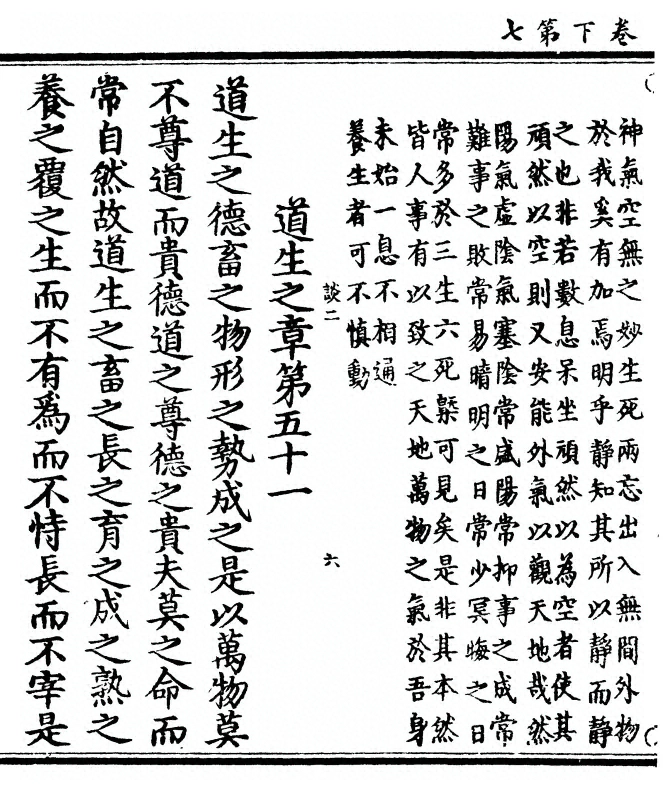 卷下第七
神氣空無之妙生死兩忘出入無間外物
於我奚有加焉明乎静知其所以静而静
之也非若數息呆坐頑然以為空者使其
頑然以空則又安能外氣以觀天地哉然
陽氣虛陰氣塞陰常盛陽常抑事之成常
難事之敗常易晴明之日常少冥晦之日
常多於三生六死槩可見矣是非其本然
皆人事有以致之天地萬物之氣於吾身
未始一息不相通
養生者可不慎動
談二
六
道生之章第五十一
道生之德畜之物形之勢成之是以萬物莫
不尊道而貴德道之尊德之貴夫莫之命而
常自然故道生之畜之長之育之成之熟之
養之覆之生而不有爲而不恃長而不宰是